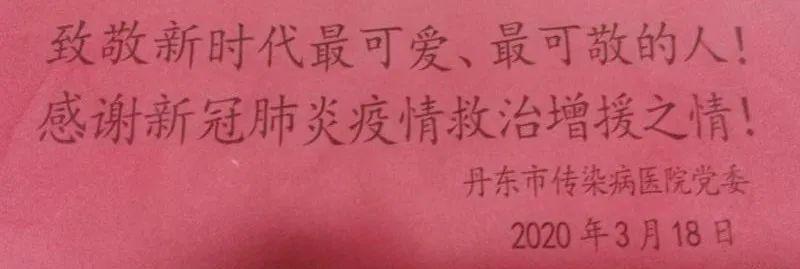 致敬新时代最可爱、最可敬的人!
感谢新冠肺炎疫情救治增援之情!
丹东市传染病医院党委
2020年3月18日